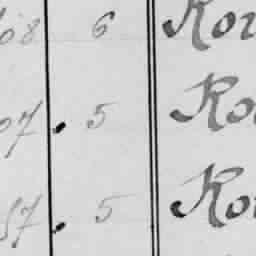 68 6 Kor
07. 5 Ko
57. 5 Kor